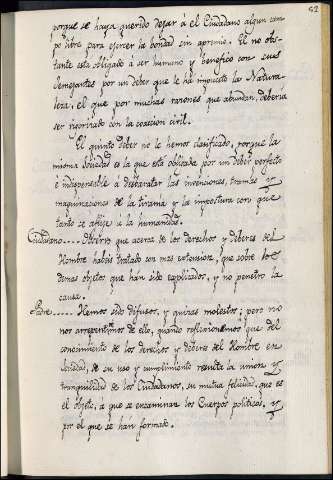 52
porque se haya querido dejar á el Ciudadano algun cam-
po libre para ejercer la bondad sin apremio. El no obs-
tante esta obligado á ser humano y benefico con sus
semejantes por un deber que le ha impuesto la Natura-
leza, el que por muchas razones que abundan, deberia
ser vigorizado con la coaccion civil.
El quinto deber no le hemos clasificado, porque la
misma Sociedad es la que está obligada por un deber perfecto
é indispensable á desbaratar las invenciones, tramas y
maquinaciones de la tirania y la impostura con que
tanto se aflije á la humanidad.
Ciudadano.... Observo que acerca de los derechos y deberes del
Hombre habeis tratado con mas extension, que sobre los
demas objetos que hán sido explicados, y no penetro la
causa.
Padre.... Hemos sido difusos, y quizas molestos; pero no
nos arrepentimos de ello, quando reflexionemos que del
conocimiento de los derechos y deberes del Hombre en
Sociedad, de su uso y cumplimiento resulta la union y
tranquilidad de los Ciudadanos, su mutua felicidad, que es
el objeto, á que se encaminan los Cuerpos politicos, y
por el que se hán formado.